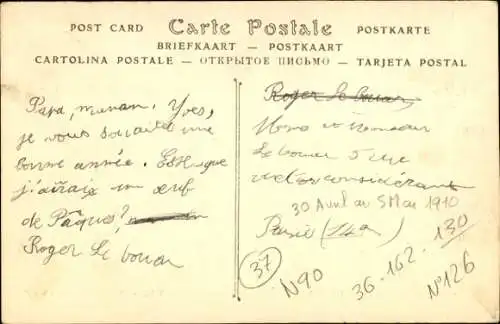 POST CARD Carte Postale POSTKARTE
BRIEFKAART — POSTKAART
CARTOLINA POSTALE — ОТКРЫТОЕ ПИСЬМО — TARJETA POSTAL
Papa, maman. Yves,
je vous souhaite une
bonne année. Est-ce que
j'aurais un œuf
de Pâques?
Roger Le bouar
Roger Le bouar,
Le bouar 5 rue
considérant
30 Avril au 5 Mai 1910
Paris (14e)
37
N90
36-162-130
N°126